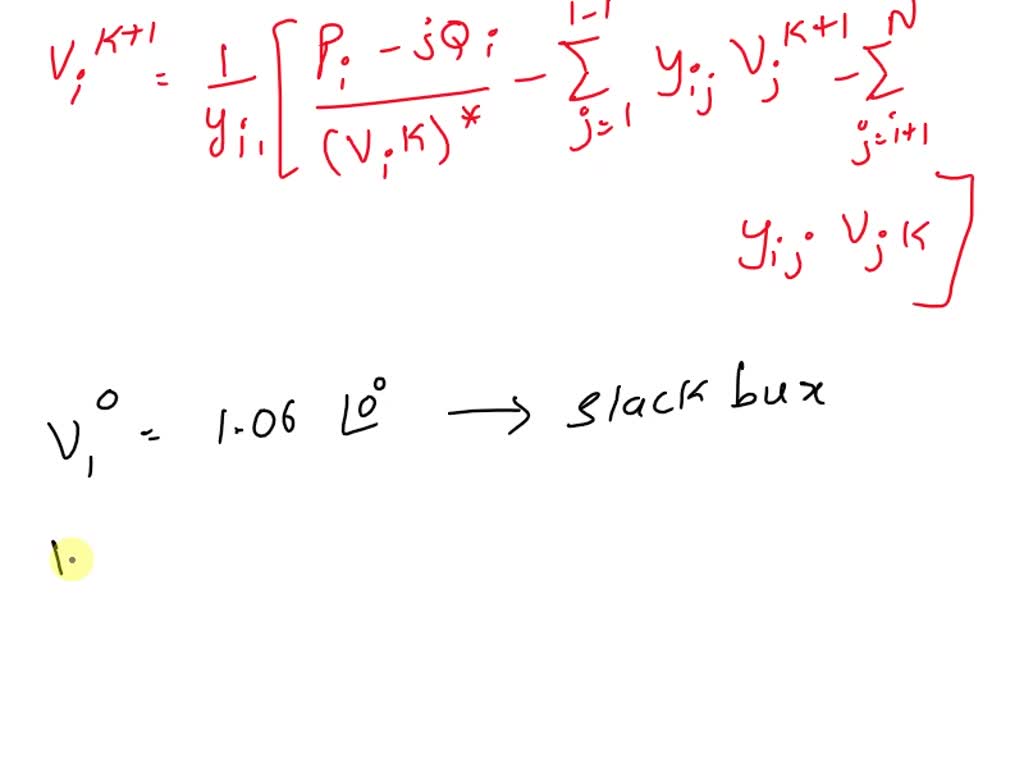 V_i^{K+1} = \frac{1}{y_{ii}} \left[ \frac{P_i - jQ_i}{(V_i^K)^*} - \sum_{j=1}^{i-1} y_{ij} V_j^{K+1} - \sum_{j=i+1}^{N}
y_{ij} \cdot V_j^K \right]
V_1^0 = 1.06 ∠0° → slack bux